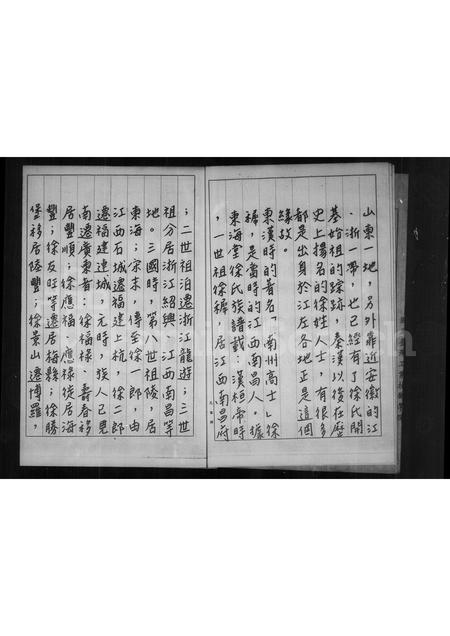 山東一地，另外靠近安徽的江
、浙一帶，也已經有了徐氏開
基始祖的踪跡，秦漢以後在歷
史上揚名的徐姓人士，有很多
都是出身於江左各地正是這個
緣故。
東漢時的著名「南州高士」徐
穉，是當時的江西南昌人。據
東海堂徐氏族譜載：漢桓帝時
，一世祖徐穉，居江西南昌府
；二世祖泊遷浙江龍游；三世
祖分居浙江紹興、江西南昌等
地。三國時，第八世祖陵，居
東海；宋末，傳至徐一郎，由
江西石城遷福建上杭，徐二郎
遷福建連城，元時，族人已見
南遷廣東者：徐福祿、壽春移
居豐順；徐應福、應祿徙居海
豐；徐友旺等遷居梅縣；徐勝
堡移居陸豐；徐景山遷博羅，